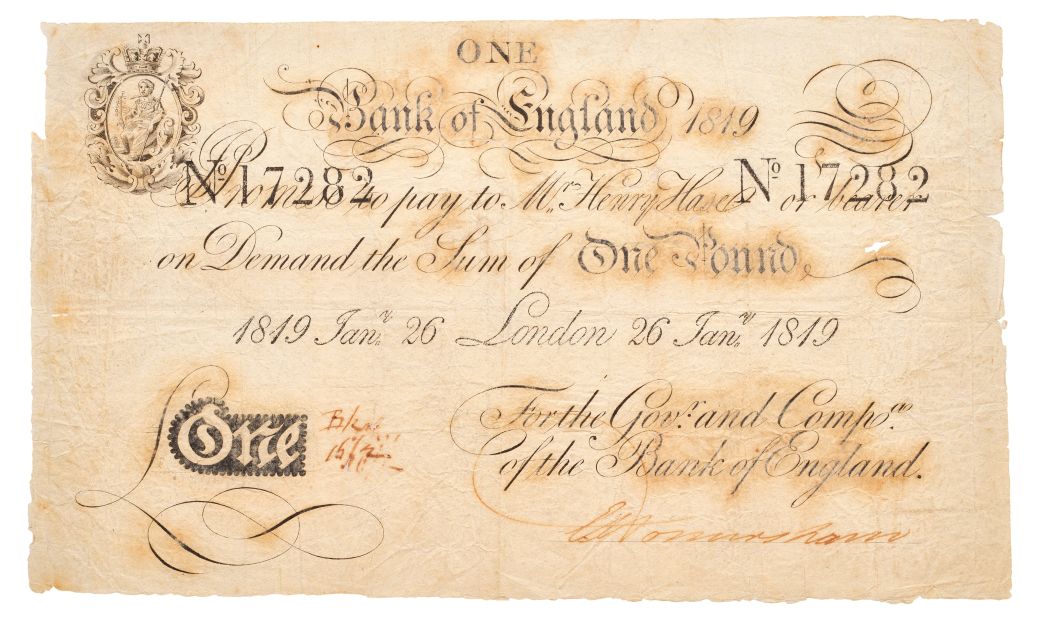 ONE
Bank of England 1819
Nº 17282 Nº 17282
I Promise to pay to Mr. Henry Hase or bearer
on Demand the Sum of One Pound
1819 Jany. 26 London 26 Jany. 1819
For the Govr. and Compa.
£ One
of the Bank of England.